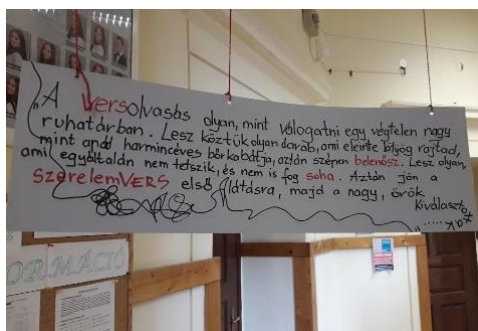 „A Versolvasás olyan, mint válogatni egy végtelen nagy
ruhatárban. Lesz köztük olyan darab, ami eleinte lötyög rajtad,
mint apád harmincéves bőrkabátja, aztán szépen belenősz. Lesz olyan,
ami egyáltalán nem tetszik, és nem is fog soha. Aztán jön a
szerelemVERS első látásra, majd a nagy, örök
Kiválaszto
ttak....."
ORMÁCIÓ